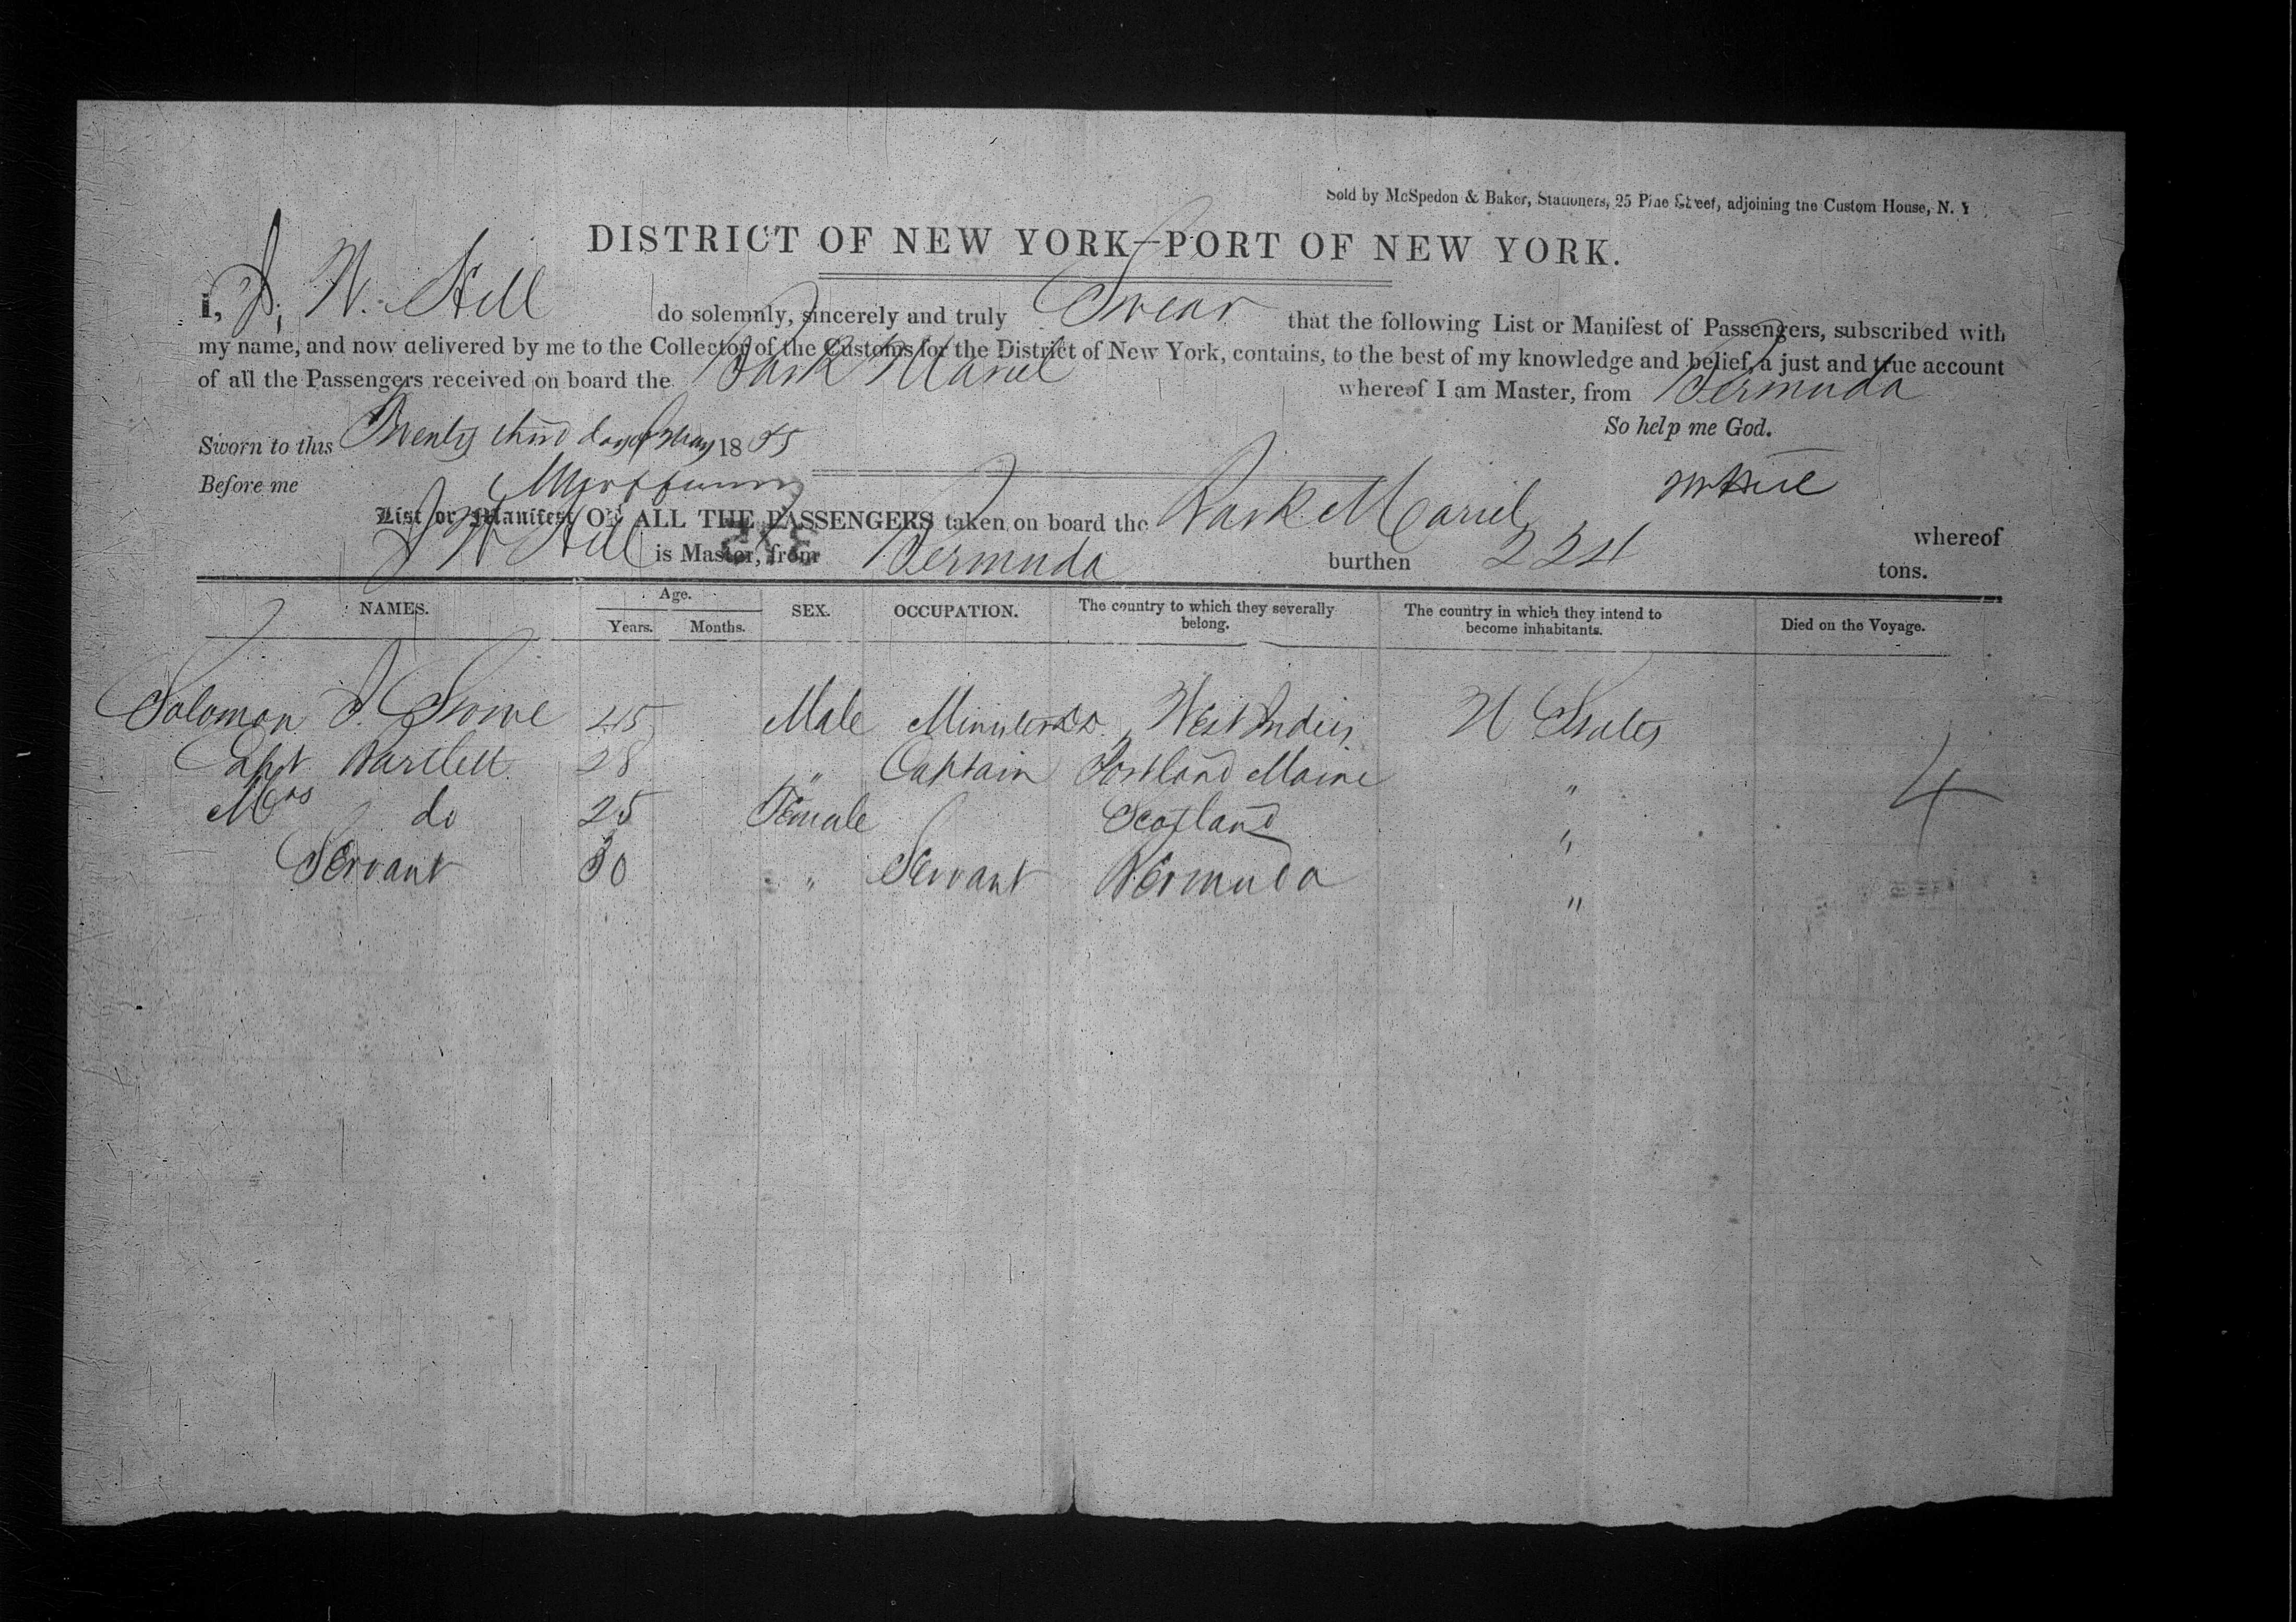 Sold by McSpedon & Baker, Stationers, 25 Pine Street, adjoining the Custom House, N. Y
DISTRICT OF NEW YORK—PORT OF NEW YORK.
I, J. W. Hill do solemnly, sincerely and truly Swear that the following List or Manifest of Passengers, subscribed with
my name, and now delivered by me to the Collector of the Customs for the District of New York, contains, to the best of my knowledge and belief, a just and true account
of all the Passengers received on board the Bark Mariel whereof I am Master, from Bermuda
So help me God.
Sworn to this Twenty third day of May 1855
Before me
List or Manifest OF ALL THE PASSENGERS taken on board the Bark Mariel whereof
J W Hill is Master, from Bermuda burthen 224 tons.
NAMES. Age. Years. Months. SEX. OCCUPATION. The country to which they severally belong. The country in which they intend to become inhabitants. Died on the Voyage.
Solomon 45 Male West Indies U States
Capt Bartlett 28 " Captain Portland Maine "
Mrs do 25 Female Scotland "
Servant 30 " Servant Bermuda "
4